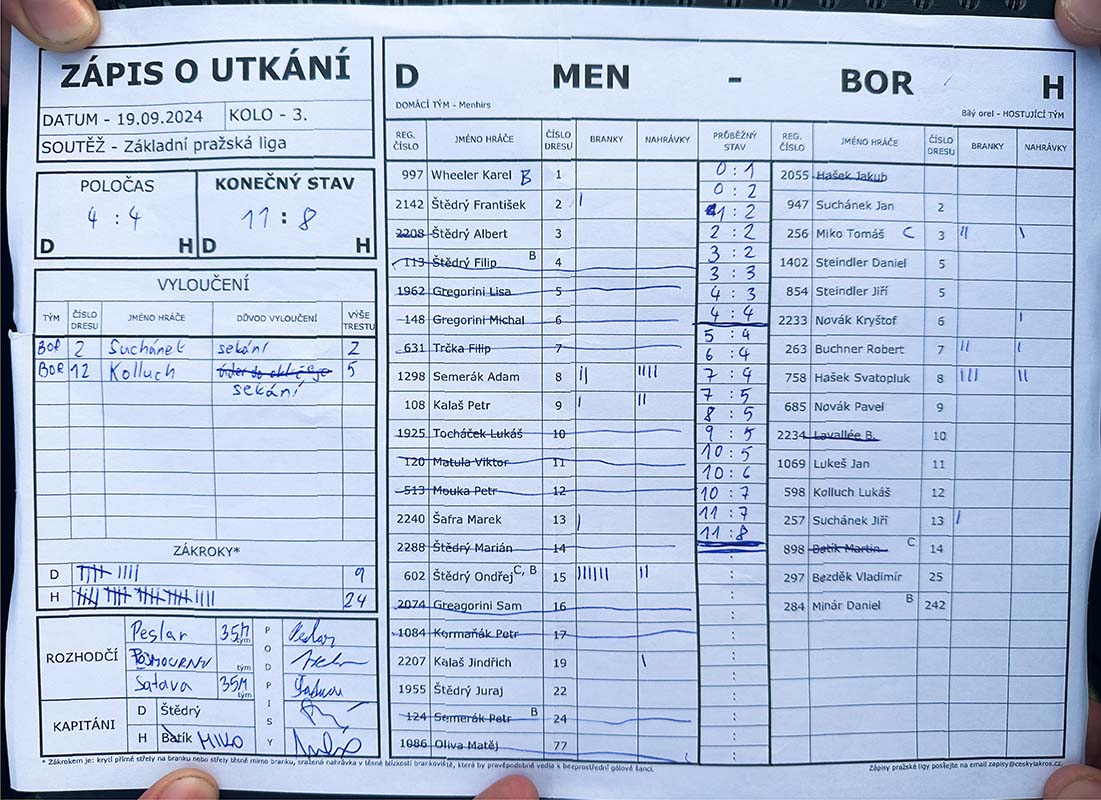 ZÁPIS O UTKÁNÍ
DATUM - 19.09.2024 KOLO - 3.
SOUTĚŽ - Základní pražská liga
POLOČAS KONEČNÝ STAV
4 : 4 11 : 8
D H D H
VYLOUČENÍ
TÝM ČÍSLO DRESU JMÉNO HRÁČE DŮVOD VYLOUČENÍ VÝŠE TRESTU
BOR 2 Suchánek sekání 2
BOR 12 Kolluch 5
sekání
ZÁKROKY*
D 9
H 24
ROZHODČÍ
Peslar 35M tým
tým
Satava 35M tým
PODPISY
KAPITÁNI
D Štědrý
H Batík MIKO
D MEN - BOR H
DOMÁCÍ TÝM - Menhirs Bílý orel - HOSTUJÍCÍ TÝM
REG. ČÍSLO JMÉNO HRÁČE ČÍSLO DRESU BRANKY NAHRÁVKY PRŮBĚŽNÝ STAV REG. ČÍSLO JMÉNO HRÁČE ČÍSLO DRESU BRANKY NAHRÁVKY
997 Wheeler Karel B 1
2142 Štědrý František 2 I
2208 Štědrý Albert 3
113 Štědrý Filip B 4
1962 Gregorini Lisa 5
148 Gregorini Michal 6
631 Trčka Filip 7
1298 Semerák Adam 8 II IIII
108 Kalaš Petr 9 I II
1925 Tocháček Lukáš 10
120 Matula Viktor 11
513 Mouka Petr 12
2240 Šafra Marek 13 I
2288 Štědrý Marián 14
602 Štědrý Ondřej C, B 15 IIIIII II
2074 Greagorini Sam 16
1084 Kormaňák Petr 17
2207 Kalaš Jindřich 19 I
1955 Štědrý Juraj 22
124 Semerák Petr B 24
1086 Oliva Matěj 77
0 : 1
0 : 2
1 : 2
2 : 2
3 : 2
3 : 3
4 : 3
4 : 4
5 : 4
6 : 4
7 : 4
7 : 5
8 : 5
9 : 5
10 : 5
10 : 6
10 : 7
11 : 7
11 : 8
2055 Hašek Jakub
947 Suchánek Jan 2
256 Miko Tomáš C 3 II I
1402 Steindler Daniel 5
854 Steindler Jiří 5
2233 Novák Kryštof 6 I
263 Buchner Robert 7 II I
758 Hašek Svatopluk 8 III II
685 Novák Pavel 9
2234 Lavallée B. 10
1069 Lukeš Jan 11
598 Kolluch Lukáš 12
257 Suchánek Jiří 13 I
898 Batík Martin C 14
297 Bezděk Vladimír 25
284 Minár Daniel B 242
* Zákrokem je: krytí přímé střely na branku nebo střely těsně mimo branku, sražená nahrávka v těsné blízkosti brankoviště, která by pravděpodobně vedla k bezprostřední gólové šanci.
Zápisy pražské ligy posílejte na email zapisy@ceskylakros.cz.